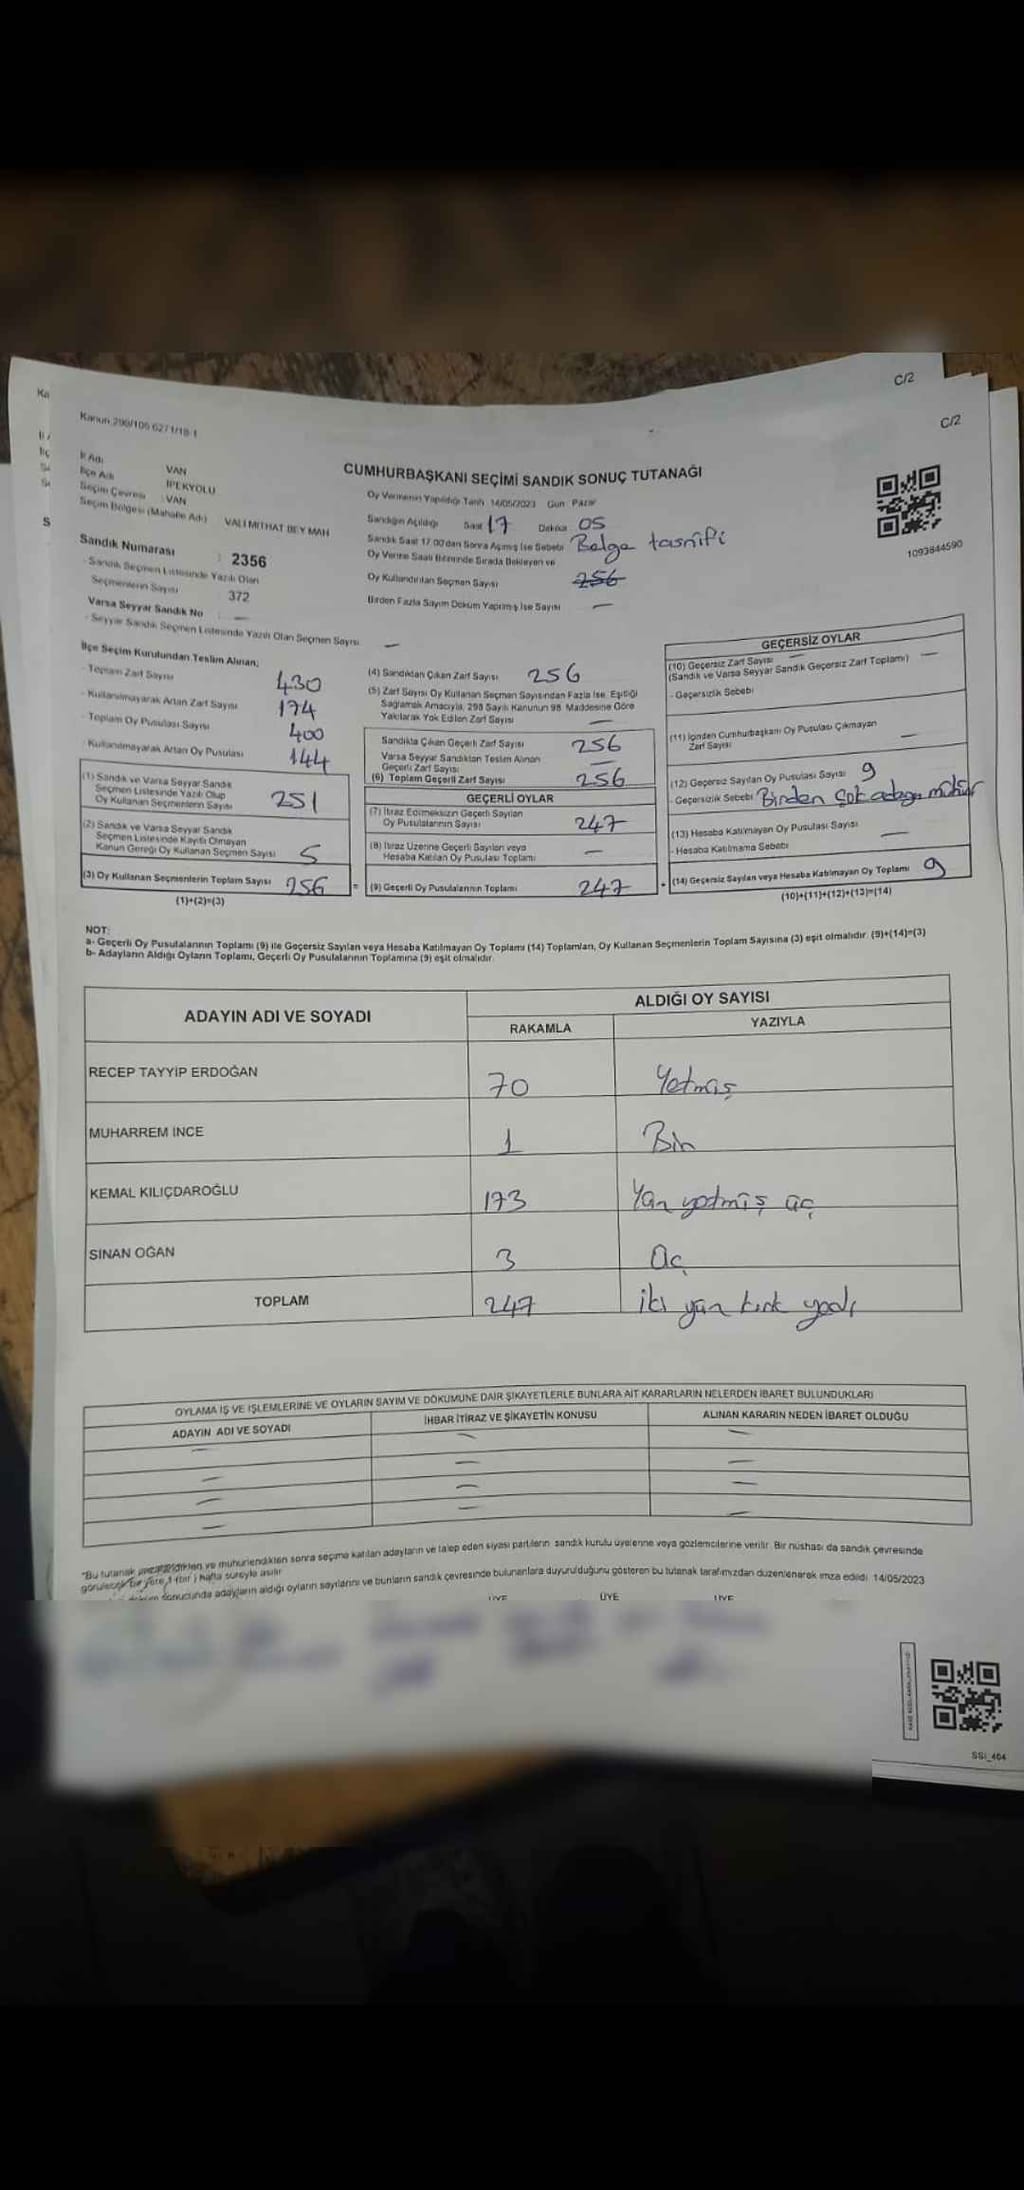 C/2
C/2
Kanun 298/105 6271/18-1
CUMHURBAŞKANI SEÇİMİ SANDIK SONUÇ TUTANAĞI
İl Adı VAN
İlçe Adı İPEKYOLU
Seçim Çevresi : VAN
Seçim Bölgesi (Mahalle Adı) VALİ MİTHAT BEY MAH
Sandık Numarası : 2356
- Sandık Seçmen Listesinde Yazılı Olan
Seçmenlerin Sayısı 372
Varsa Seyyar Sandık No : —
- Seyyar Sandık Seçmen Listesinde Yazılı Olan Seçmen Sayısı —
Oy Vermenin Yapıldığı Tarih 14/05/2023 Gün Pazar
Sandığın Açıldığı Saat 17 Dakika 05
Sandık Saat 17.00'dan Sonra Açılmış İse Sebebi Belge tasnifi
Oy Verme Saati Bitiminde Sırada Bekleyen ve
Oy Kullandırılan Seçmen Sayısı 256
Birden Fazla Sayım Döküm Yapılmış İse Sayısı —
1093844590
İlçe Seçim Kurulundan Teslim Alınan;
- Toplam Zarf Sayısı 430
- Kullanılmayarak Artan Zarf Sayısı 174
- Toplam Oy Pusulası Sayısı 400
- Kullanılmayarak Artan Oy Pusulası 144
(1) Sandık ve Varsa Seyyar Sandık
Seçmen Listesinde Yazılı Olup
Oy Kullanan Seçmenlerin Sayısı 251
(2) Sandık ve Varsa Seyyar Sandık
Seçmen Listesinde Kayıtlı Olmayan
Kanun Gereği Oy Kullanan Seçmen Sayısı 5
(3) Oy Kullanan Seçmenlerin Toplam Sayısı 256
(1)+(2)=(3)
(4) Sandıktan Çıkan Zarf Sayısı 256
(5) Zarf Sayısı Oy Kullanan Seçmen Sayısından Fazla İse, Eşitliği
Sağlamak Amacıyla, 298 Sayılı Kanunun 98. Maddesine Göre
Yakılarak Yok Edilen Zarf Sayısı —
Sandıkta Çıkan Geçerli Zarf Sayısı 256
Varsa Seyyar Sandıktan Teslim Alınan
Geçerli Zarf Sayısı —
(6) Toplam Geçerli Zarf Sayısı 256
GEÇERLİ OYLAR
(7) İtiraz Edilmeksizin Geçerli Sayılan
Oy Pusulalarının Sayısı 247
(8) İtiraz Üzerine Geçerli Sayılan veya
Hesaba Katılan Oy Pusulası Toplamı —
= (9) Geçerli Oy Pusulalarının Toplamı 247 +
GEÇERSİZ OYLAR
(10) Geçersiz Zarf Sayısı —
(Sandık ve Varsa Seyyar Sandık Geçersiz Zarf Toplamı) —
- Geçersizlik Sebebi
(11) İçinden Cumhurbaşkanı Oy Pusulası Çıkmayan
Zarf Sayısı —
(12) Geçersiz Sayılan Oy Pusulası Sayısı 9
- Geçersizlik Sebebi Birden çok adaya mühür
(13) Hesaba Katılmayan Oy Pusulası Sayısı —
- Hesaba Katılmama Sebebi
(14) Geçersiz Sayılan veya Hesaba Katılmayan Oy Toplamı 9
(10)+(11)+(12)+(13)=(14)
NOT:
a- Geçerli Oy Pusulalarının Toplamı (9) ile Geçersiz Sayılan veya Hesaba Katılmayan Oy Toplamı (14) Toplamları, Oy Kullanan Seçmenlerin Toplam Sayısına (3) eşit olmalıdır. (9)+(14)=(3)
b- Adayların Aldığı Oyların Toplamı, Geçerli Oy Pusulalarının Toplamına (9) eşit olmalıdır.
ADAYIN ADI VE SOYADI ALDIĞI OY SAYISI
RAKAMLA YAZIYLA
RECEP TAYYİP ERDOĞAN 70 Yetmiş
MUHARREM İNCE 1 Bir
KEMAL KILIÇDAROĞLU 173 Yüz yetmiş üç
SİNAN OĞAN 3 Üç
TOPLAM 247 iki yüz kırk yedi
OYLAMA İŞ VE İŞLEMLERİNE VE OYLARIN SAYIM VE DÖKÜMÜNE DAİR ŞİKAYETLERLE BUNLARA AİT KARARLARIN NELERDEN İBARET BULUNDUKLARI
ADAYIN ADI VE SOYADI İHBAR İTİRAZ VE ŞİKAYETİN KONUSU ALINAN KARARIN NEDEN İBARET OLDUĞU
"Bu tutanak ve mühürlendikten sonra seçime katılan adayların ve talep eden siyasi partilerin sandık kurulu üyelerine veya gözlemcilerine verilir. Bir nüshası da sandık çevresinde
görülecek bir yere 1 (bir) hafta süreyle asılır.
sonucunda adayların aldığı oyların sayılarını ve bunların sandık çevresinde bulunanlara duyurulduğunu gösteren bu tutanak tarafımızdan düzenlenerek imza edildi. 14/05/2023
ÜYE ÜYE ÜYE
SSİ_404